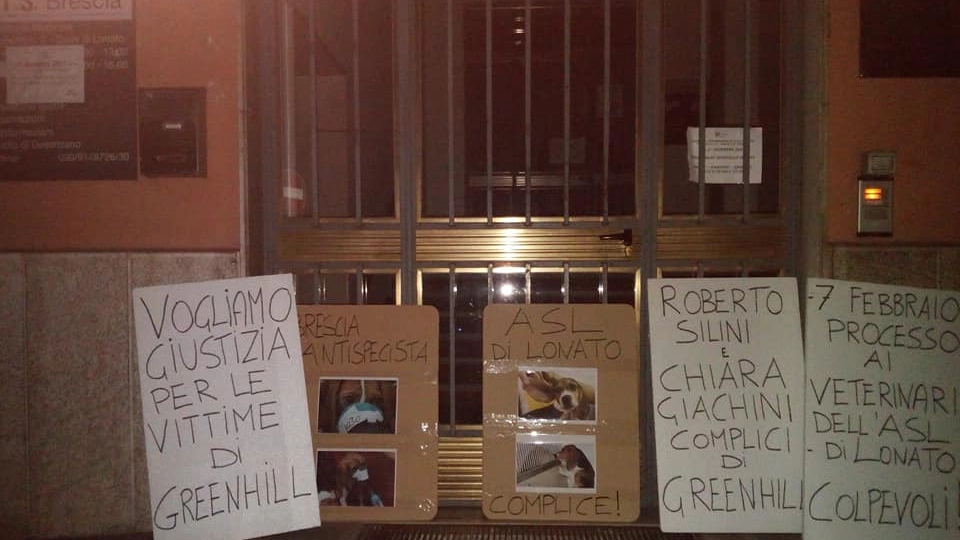 Brescia
VOGLIAMO
GIUSTIZIA
PER LE
VITTIME
DI
GREENHILL
BRESCIA
ANTISPECISTA
ASL
DI LONATO
COMPLICE!
ROBERTO
SILINI
E
CHIARA
GIACHINI
COMPLICI
DI
GREENHIL
-7 FEBBRAIO
PROCESSO
AI
VETERINARI
DELL'ASL
-DI LONATO
COLPEVOLI!